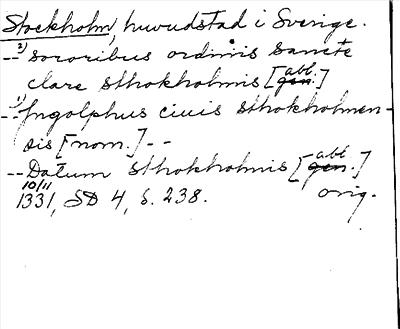 Stockholm, huvudstad i Sverige.
-- 2) sororibus ordinis sancte
clare sthokholmis [gen. abl.]
-- 1) Jngolphus ciuis sthokholmen-
sis [nom.] --
-- Datum sthokholmis [gen. abl.]
10/11 1331, SD 4, s. 238. orig.